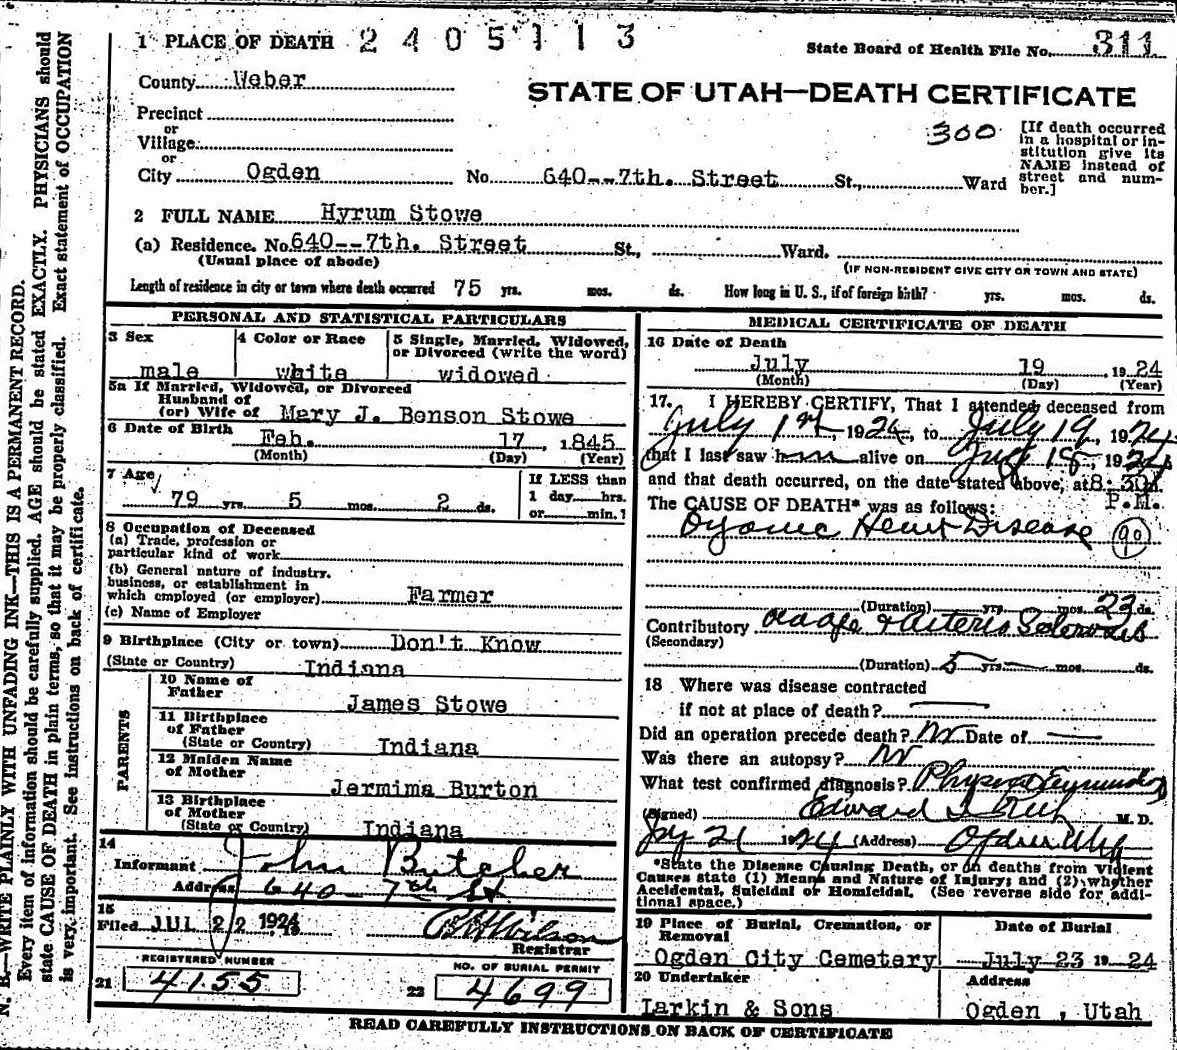 1 PLACE OF DEATH 2405113
State Board of Health File No. 311
County Weber
STATE OF UTAH—DEATH CERTIFICATE
Precinct
or
Village
or
City Ogden No. 640--7th. Street St., Ward
300
[If death occurred
in a hospital or in-
stitution give its
NAME instead of
street and num-
ber.]
2 FULL NAME Hyrum Stowe
(a) Residence. No. 640--7th. Street St., Ward.
(Usual place of abode) (IF NON-RESIDENT GIVE CITY OR TOWN AND STATE)
Length of residence in city or town where death occurred 75 yrs. mos. ds. How long in U. S., if of foreign birth? yrs. mos. ds.
PERSONAL AND STATISTICAL PARTICULARS
3 Sex male
4 Color or Race white
5 Single, Married, Widowed,
or Divorced (write the word)
widowed
5a If Married, Widowed, or Divorced
Husband of
(or) Wife of Mary J. Benson Stowe
6 Date of Birth Feb. 17 1845
(Month) (Day) (Year)
7 Age 79 yrs. 5 mos. 2 ds.
If LESS than
1 day hrs.
or min.?
8 Occupation of Deceased
(a) Trade, profession or
particular kind of work
(b) General nature of industry,
business, or establishment in
which employed (or employer) Farmer
(c) Name of Employer
9 Birthplace (City or town) Don't Know
(State or Country) Indiana
PARENTS
10 Name of
Father James Stowe
11 Birthplace
of Father
(State or Country) Indiana
12 Maiden Name
of Mother Jermima Burton
13 Birthplace
of Mother
(State or Country) Indiana
14
Informant John Butcher
Address 640 7th St
15
Filed JUL 22 1924
Wilson
Registrar
REGISTERED NUMBER
21 4155
NO. OF BURIAL PERMIT
22 4699
MEDICAL CERTIFICATE OF DEATH
16 Date of Death
July 19, 1924
(Month) (Day) (Year)
17. I HEREBY CERTIFY, That I attended deceased from
July 1st, 1924, to July 19, 1924
that I last saw him alive on July 18, 1924
and that death occurred, on the date stated above, at 8:30
P.M.
The CAUSE OF DEATH* was as follows:
Organic Heart Disease 90
(Duration) yrs. mos. 23 ds.
Contributory Old age & Arterio Sclerosis
(Secondary)
(Duration) 5 yrs. mos. ds.
18 Where was disease contracted
if not at place of death?
Did an operation precede death? No Date of
Was there an autopsy? No
What test confirmed diagnosis? Physical
(Signed) Edward I. Rich M. D.
July 21 1924 (Address) Ogden Utah
*State the Disease Causing Death, or in deaths from Violent
Causes state (1) Means and Nature of Injury; and (2) whether
Accidental, Suicidal or Homicidal. (See reverse side for addi-
tional space.)
19 Place of Burial, Cremation, or
Removal
Ogden City Cemetery
Date of Burial
July 23 1924
20 Undertaker
Larkin & Sons
Address
Ogden, Utah
READ CAREFULLY INSTRUCTIONS ON BACK OF CERTIFICATE
N. B.—WRITE PLAINLY WITH UNFADING INK—THIS IS A PERMANENT RECORD.
Every item of information should be carefully supplied. AGE should be stated EXACTLY. PHYSICIANS should
state CAUSE OF DEATH in plain terms, so that it may be properly classified. Exact statement of OCCUPATION
is very important. See instructions on back of certificate.